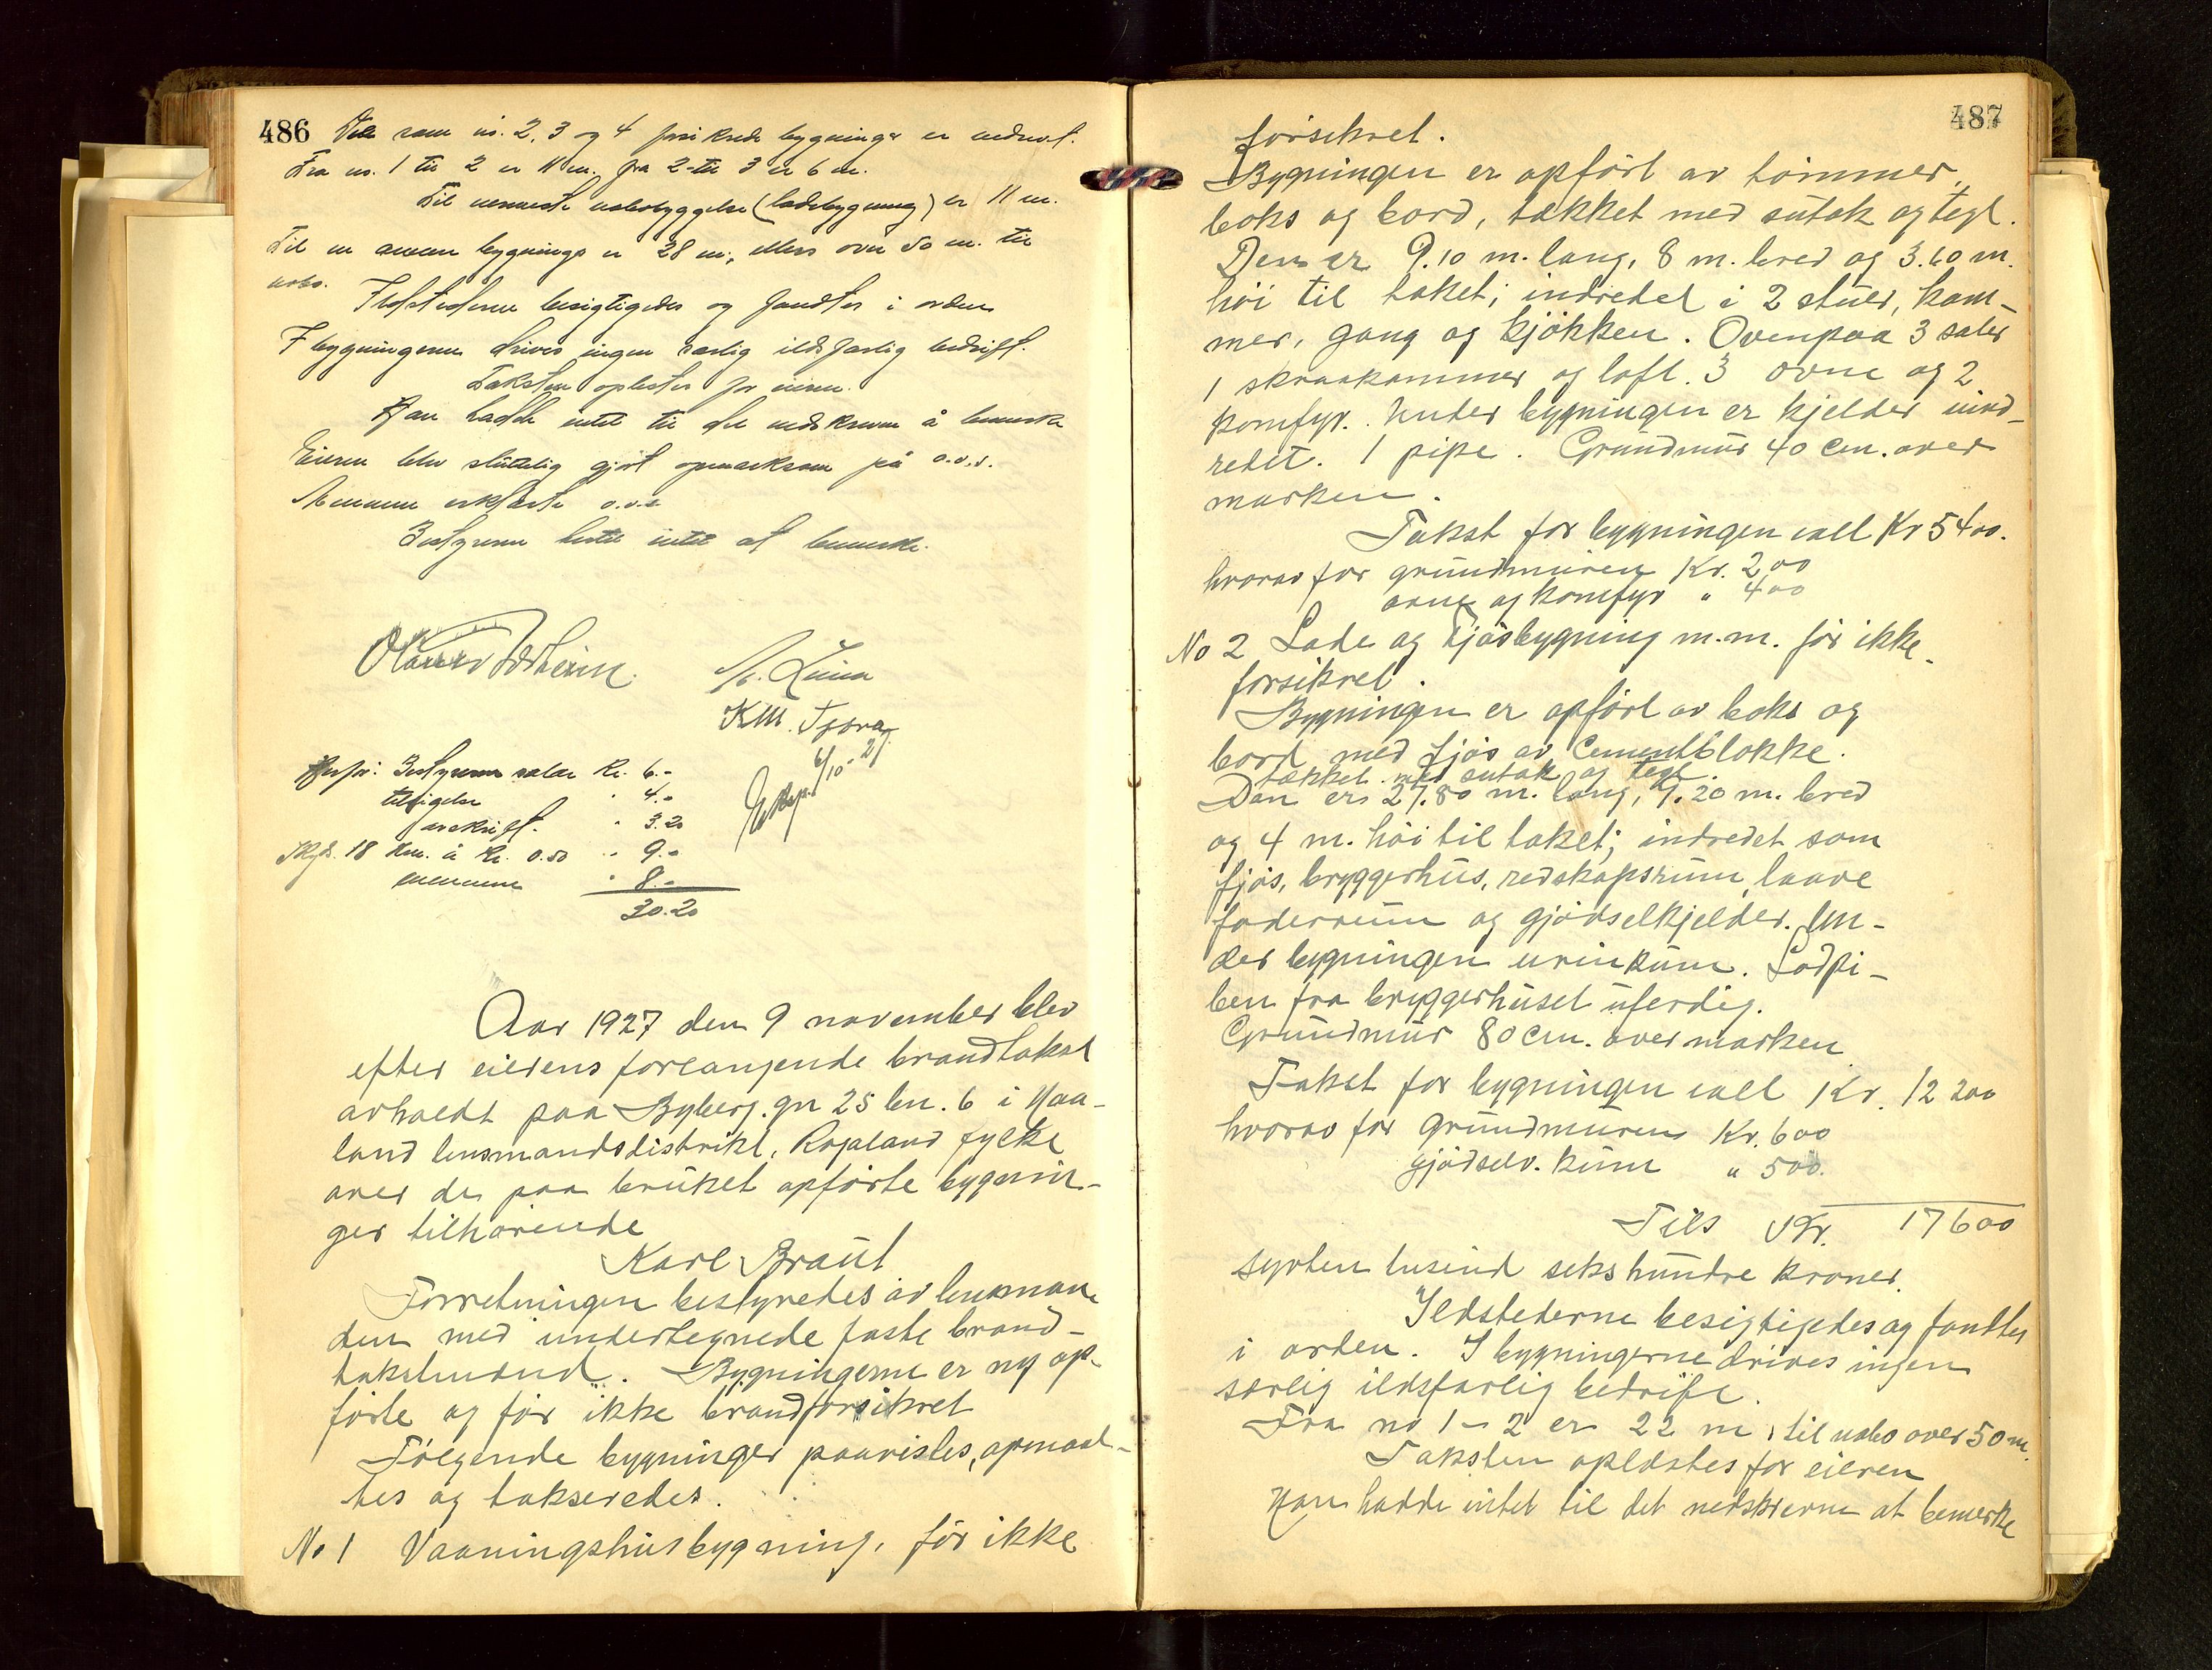 486 som no. 2, 3 og 4 forsikrede bygninger er nedrevet.
Fra no. 1 til 2 er 11 m. fra 2 til 3 er 6 m.
Til nærmeste nabobyggelse (ladebygning) er 11 m.
Til en annen bygning er 28 m, ellers over 50 m. til
nabo.
Ildstederne besigtigedes og fandtes i orden
I bygningerne drives ingen særlig ildsfarlig bedrift.
Taksten oplestes for eieren.
Han hadde intet til det nedskrevne å bemerke
Eieren blev sluttelig gjort opmerksom på o.s.v.
Mennene erklærte o.s.v.
Bestyreren hadde intet at bemerke.
K.M. Tjora
Bestyrerens salær kr. 6.-
tilsigelse " 4.-
avskrift. " 3.20
Skyds. 18 km. à kr. 0.50 " 9.-
mennene " 8.-
30.20
6/10-27
Aar 1927 den 9 november blev
efter eierens forlangende brandtakst
avholdt paa Byberg. gn 25 bn. 6 i Haa-
land lensmandsdistrikt, Rogaland fylke
over de paa bruket opførte bygnin-
ger tilhørende
Karl Braut
Forretningen bestyredes av lensman-
den med undertegnede faste brand-
takstmænd. Bygningerne er ny op-
førte og før ikke brandforsikret
Følgende bygninger paavistes, opmaal-
tes og takseredes.
No 1 Vaaningshusbygning, før ikke
487
forsikret.
Bygningen er opført av tømmer,
boks og bord, tækket med sutak og tegl.
Den er 9.10 m. lang, 8 m. bred og 3.60 m.
høi til taket; indredet i 2 stuer, kam-
mer, gang og kjøkken. Ovenpaa 3 saler
1 skraakammer og loft. 3 ovne og 2
komfyr. Under bygningen er kjelder ind-
redet. 1 pipe. Grundmur 40 cm. over
marken.
Takst for bygningen iall Kr 5400.
hvorav for grundmuren Kr. 200
ovne og komfyr " 400
No 2 Lade og Fjøsbygning m.m. før ikke
forsikret.
Bygningen er opført av boks og
bord med fjøs av Cementblokke.
tækket med sutak og tegl.
Den er 27.80 m. lang, 9.20 m. bred
og 4 m. høi til taket; indredet som
fjøs, bryggerhus, redskapsrum, laave
foderrum og gjødselkjelder. Un-
der bygningen urinkum. Lodpi-
ben fra bryggerhuset uferdig.
Grundmur 80 cm. over marken
Takst for bygningen iall Kr. 12 200
hvorav for Grundmuren Kr. 600
gjødselv. kum " 500.
Tils Kr. 17600
sytten tusind sekshundre kroner.
Ildstederne besigtigedes og fandtes
i orden. I bygningerne drives ingen
særlig ildsfarlig bedrift.
Fra no 1 - 2 er 22 m, til nabo over 50 m.
Taksten oplæstes for eieren
Han hadde intet til det nedskrevne at bemerke